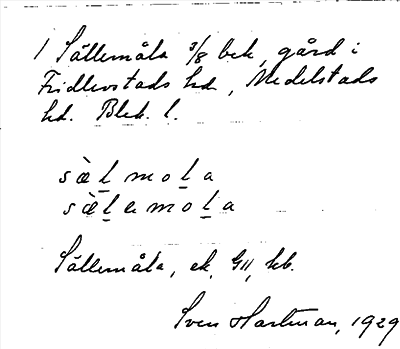 1 Sällemåla 3/8 bek, gård i
Fridlevstads hd, Medelstads
hd. Blek. l.
sæ̀l̲mol̲a
sæ̀l̲emol̲a
Sällemåla, ek, GII, kb.
Sven Hartman, 1929